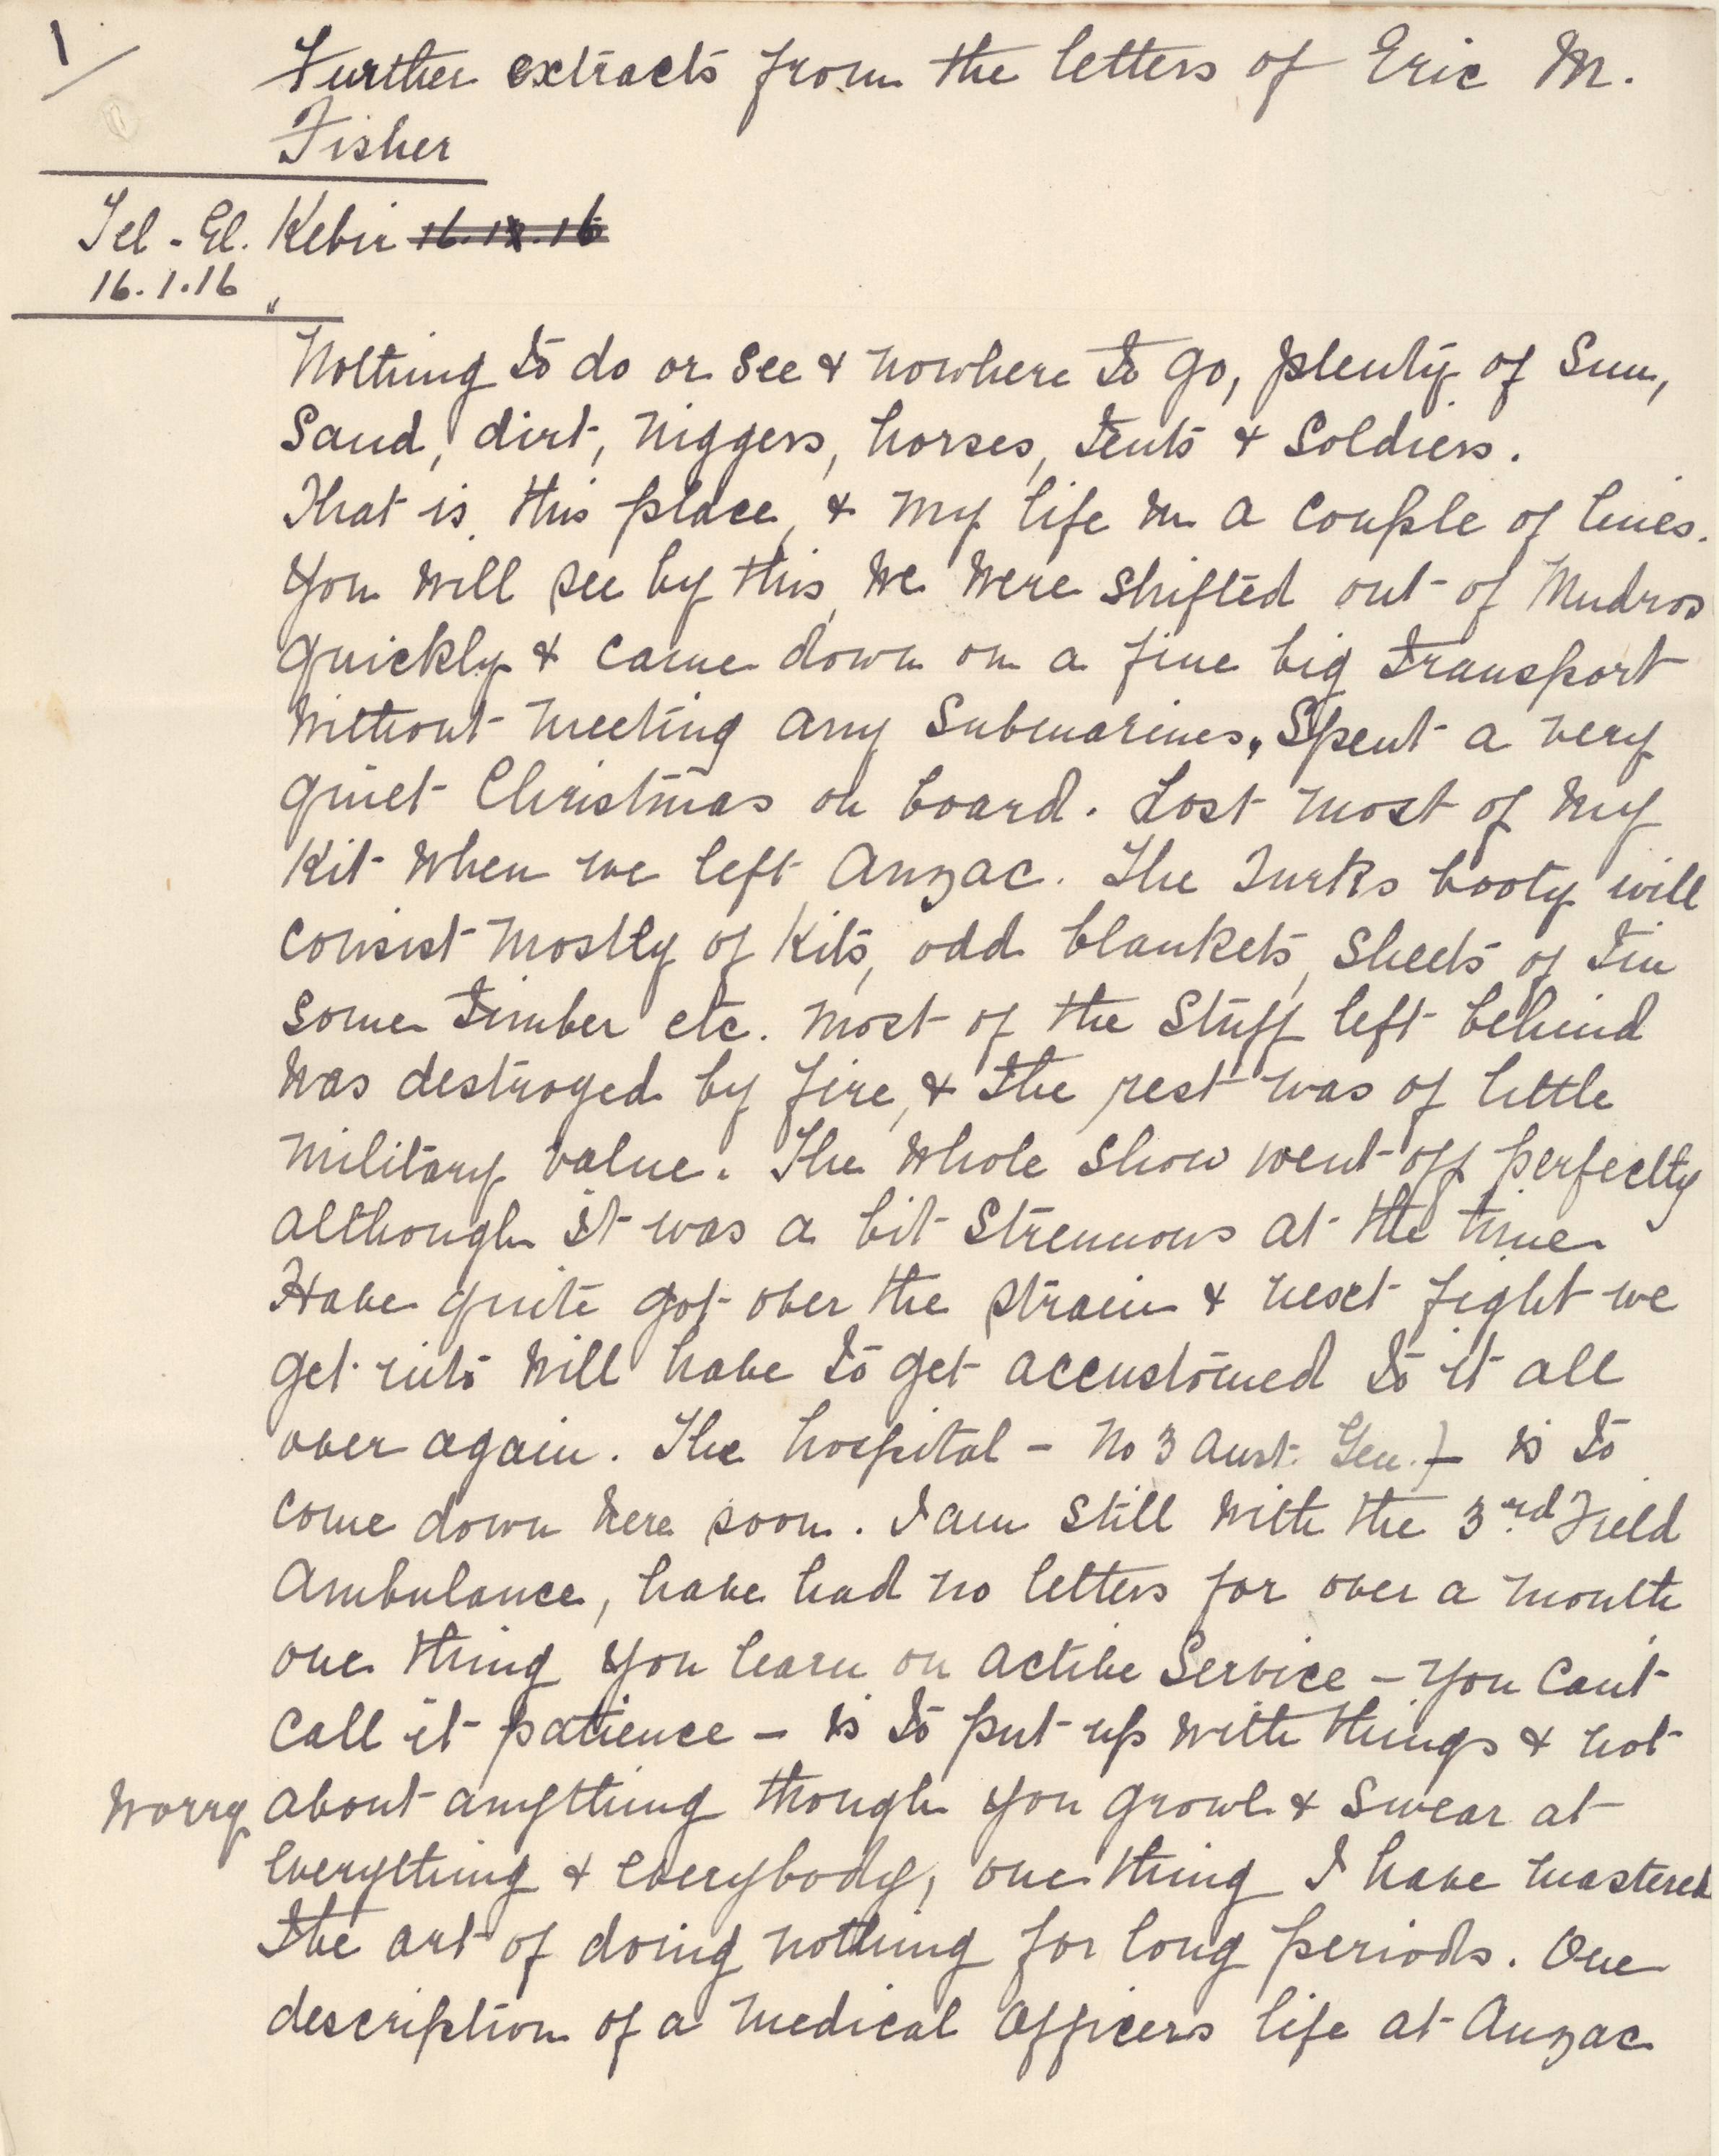 1/
Further extracts from the letters of Eric M.
Fisher
Tel-El. Kebir 16.IX.16
16.1.16 "
Nothing to do or see & nowhere to go, plenty of Sun,
Sand, dirt, niggers, horses, tents & Soldiers.
That is this place, & my life in a couple of lines.
You will see by this, we were shifted out of Mudros
quickly & came down on a fine big transport
without meeting any Submarines, Spent a very
quiet Christmas on board. Lost most of my
Kit when we left Anzac. The Turks booty will
consist mostly of Kits, odd blankets, sheets of tin
some timber etc. most of the stuff left behind
was destroyed by fire, & the rest was of little
military value. The whole show went off perfectly
although it was a bit strenuous at the time
Have quite got over the strain & next fight we
get into will have to get accustomed to it all
over again. The hospital - No 3 Aust. Gen.)- is to
come down here soon. I am still with the 3rd Field
Ambulance, have had no letters for over a month
one thing you learn on active Service - you cant
call it patience - is to put up with things & not
worry about anything though you growl & swear at
everything & everybody, one thing I have mastered
the art of doing nothing for long periods. One
description of a Medical Officers life at Anzac